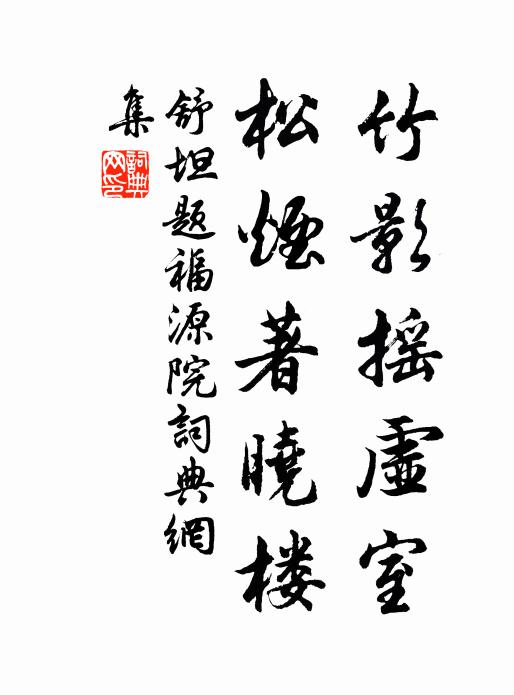 竹影摇虚室
松煙著曉楼
舒坦题福源院詞典網
集
詞典
网印